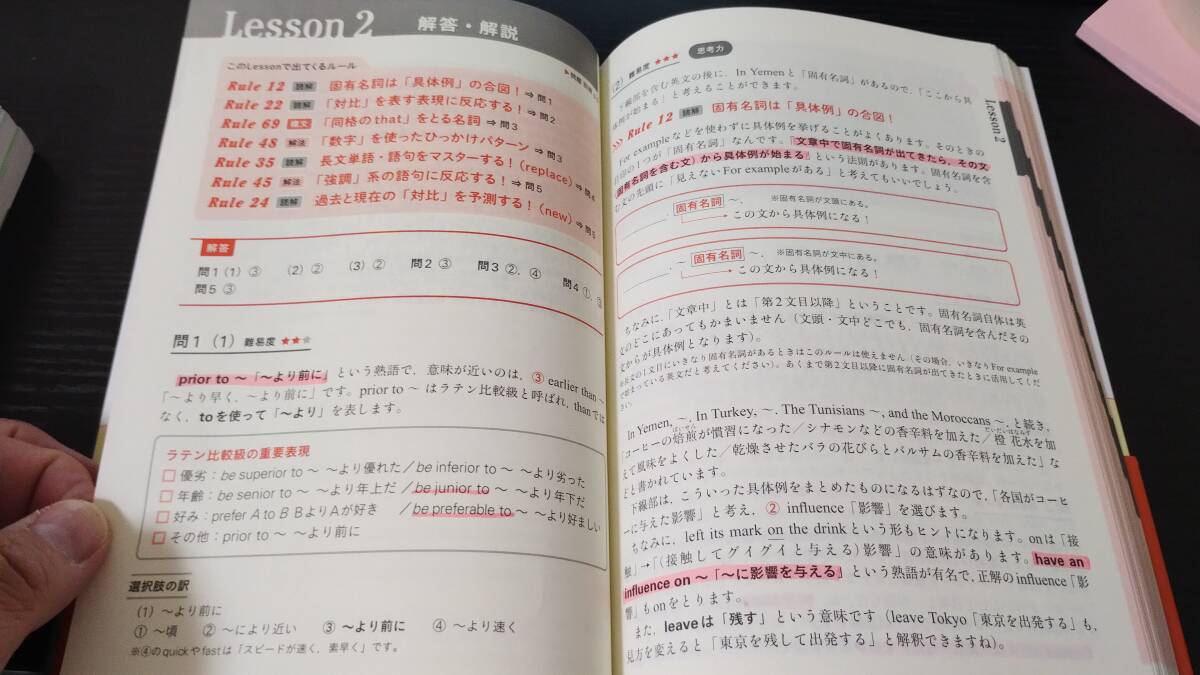 Lesson 2 解答・解説
このLessonで出てくるルール
Rule 12 読解 固有名詞は「具体例」の合図！⇒問1
Rule 22 読解 「対比」を表す表現に反応する！⇒問2
Rule 69 構文 「同格のthat」をとる名詞⇒問3
Rule 48 解法 「数字」を使ったひっかけパターン⇒問3
Rule 35 読解 長文単語・語句をマスターする！(replace)⇒問4
Rule 45 解法 「強調」系の語句に反応する！⇒問5
Rule 24 読解 過去と現在の「対比」を予測する！(new)⇒問5
解答
問1 (1) ③ (2) ② (3) ② 問2 ③ 問3 ②, ④ 問4 ①, ③
問5 ③
問1 (1) 難易度 ★★★
prior to ～「～より前に」という熟語で，意味が近いのは，③ earlier than ～
「～より早く，～より前に」です。prior to ～ はラテン比較級と呼ばれ，thanでは
なく，toを使って「～より」を表します。
ラテン比較級の重要表現
□ 優劣：be superior to ～ ～より優れた／be inferior to ～ ～より劣った
□ 年齢：be senior to ～ ～より年上だ／be junior to ～ ～より年下だ
□ 好み：prefer A to B BよりAが好き ／be preferable to ～ ～より好ましい
□ その他：prior to ～ ～より前に
選択肢の訳
(1) ～より前に
① ～頃 ② ～により近い ③ ～より前に ④ ～より速く
※④のquickやfastは「スピードが速く，素早く」です。
(2) 難易度 ★★★ 思考力
下線部を含む英文の後に，In Yemenと「固有名詞」があるので，「ここから具
体例が始まる」と考えることができます。
>>> Rule 12 読解 固有名詞は「具体例」の合図！
For exampleなどを使わずに具体例を挙げることがよくあります。そのときの
目印の1つが「固有名詞」なんです。「文章中で固有名詞が出てきたら，その文
(固有名詞を含む文)から具体例が始まる」という法則があります。固有名詞を含
む文の先頭に「見えないFor exampleがある」と考えてもいいでしょう。
. 固有名詞 ～. ※固有名詞が文頭にある。
この文から具体例になる！
. ～ 固有名詞 ～. ※固有名詞が文中にある。
この文から具体例になる！
ちなみに，「文章中」とは「第2文目以降」ということです。固有名詞自体は英
文のどこにあってもかまいません（文頭・文中どこでも，固有名詞を含んだその
文からが具体例となります）。
※長文の1文目にいきなり固有名詞があるときはこのルールは使えません（その場合，いきなりFor example
で始まっている英文だと考えてください）。あくまで第2文目以降に固有名詞が出てきたときに活用してくだ
さい。
In Yemen, ～, In Turkey, ～. The Tunisians ～, and the Moroccans ～. と続き，
「コーヒーの焙煎が慣習になった／シナモンなどの香辛料を加えた／橙花水を加
えて風味をよくした／乾燥させたバラの花びらとバルサムの香辛料を加えた」な
どと書かれています。
下線部は，こういった具体例をまとめたものになるはずなので，「各国がコーヒ
ーに与えた影響」と考え，② influence「影響」を選びます。
ちなみに，left its mark on the drinkという形もヒントになります。onは「接
触」→「（接触してグイグイと与える）影響」の意味があります。have an
influence on ～「～に影響を与える」という熟語が有名で，正解のinfluence「影
響」もonをとります。
また，leaveは「残す」という意味です（leave Tokyo「東京を出発する」も，
見方を変えると「東京を残して出発する」と解釈できますね）。
Lesson 2